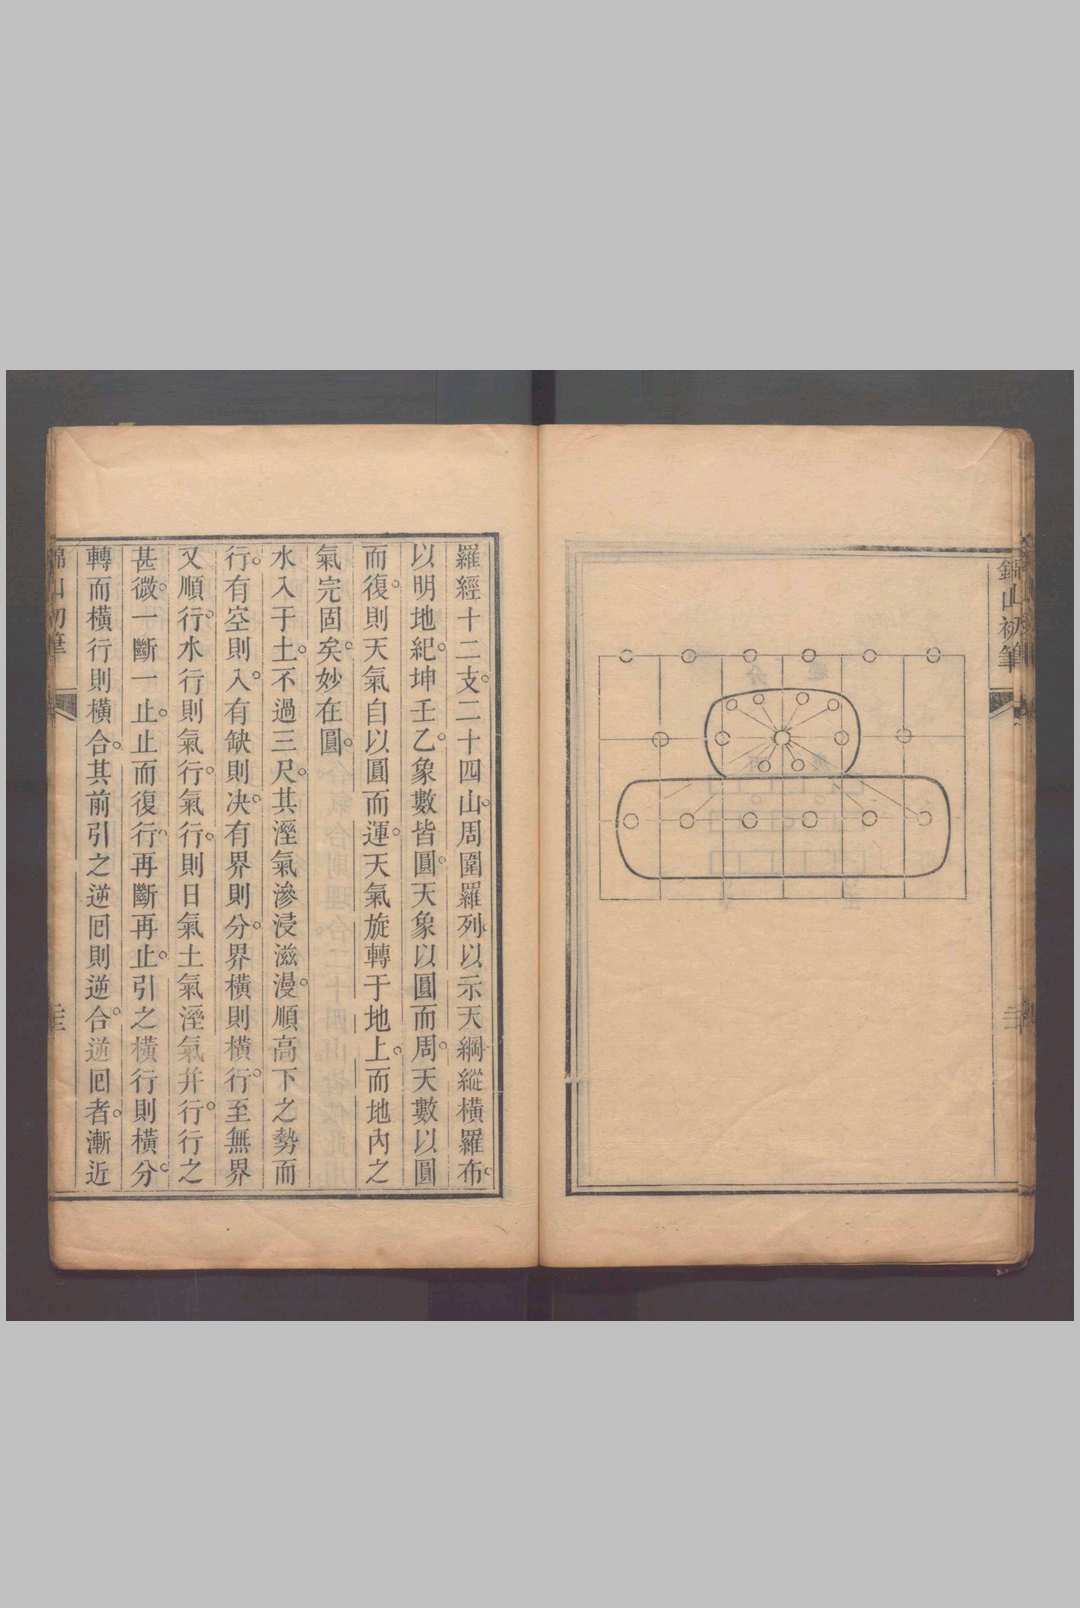 山初筆
羅經十二支。二十四山。周圍羅列。以示天綱縱橫羅布。
以明地紀。坤壬乙。象數皆圓。天象以圓而周。天數以圓
而復。則天氣自以圓而運。天氣旋轉于地上。而地內之
氣完固矣。妙在圓。
水入于土。不過三尺。其溼氣滲浸滋漫。順高下之勢而
行。有空則入。有缺則決。有界則分。界橫則橫行。至無界
又順行。水行則氣行。氣行。則日氣土氣溼氣并行。行之
甚微。一斷一止。止而復行。再斷再止。引之橫行則橫分。
轉而橫行則橫合。其前引之逆囘則逆合。逆囘者。漸近
山初筆